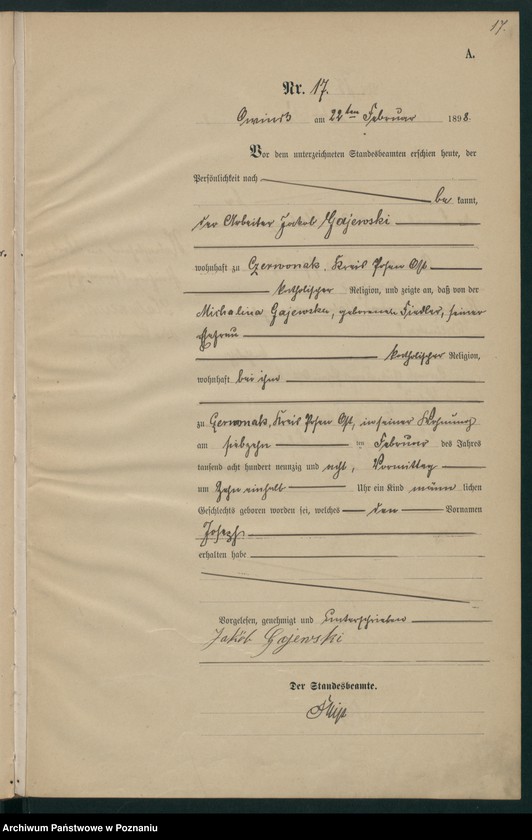 17.
A.
Nr. 17.
Owinsk am 22ten Februar 1898.
Vor dem unterzeichneten Standesbeamten erschien heute, der
Persönlichkeit nach
be kannt,
der Arbeiter Jakob Gajewski
wohnhaft zu Czerwonak, Kreis Posen Ost
katholischer Religion, und zeigte an, daß von der
Michalina Gajewska, geborenen Fiedler, seiner
Ehefrau
katholischer Religion,
wohnhaft bei ihm
zu Czerwonak, Kreis Posen Ost, in seiner Wohnung
am siebzehn ten Februar des Jahres
tausend acht hundert neunzig und acht, Vormittag
um zehn einhalb Uhr ein Kind männ lichen
Geschlechts geboren worden sei, welches den Vornamen
Joseph
erhalten habe
Vorgelesen, genehmigt und unterschrieben
Jakób Gajewski
Der Standesbeamte.
Archiwum Państwowe w Poznaniu